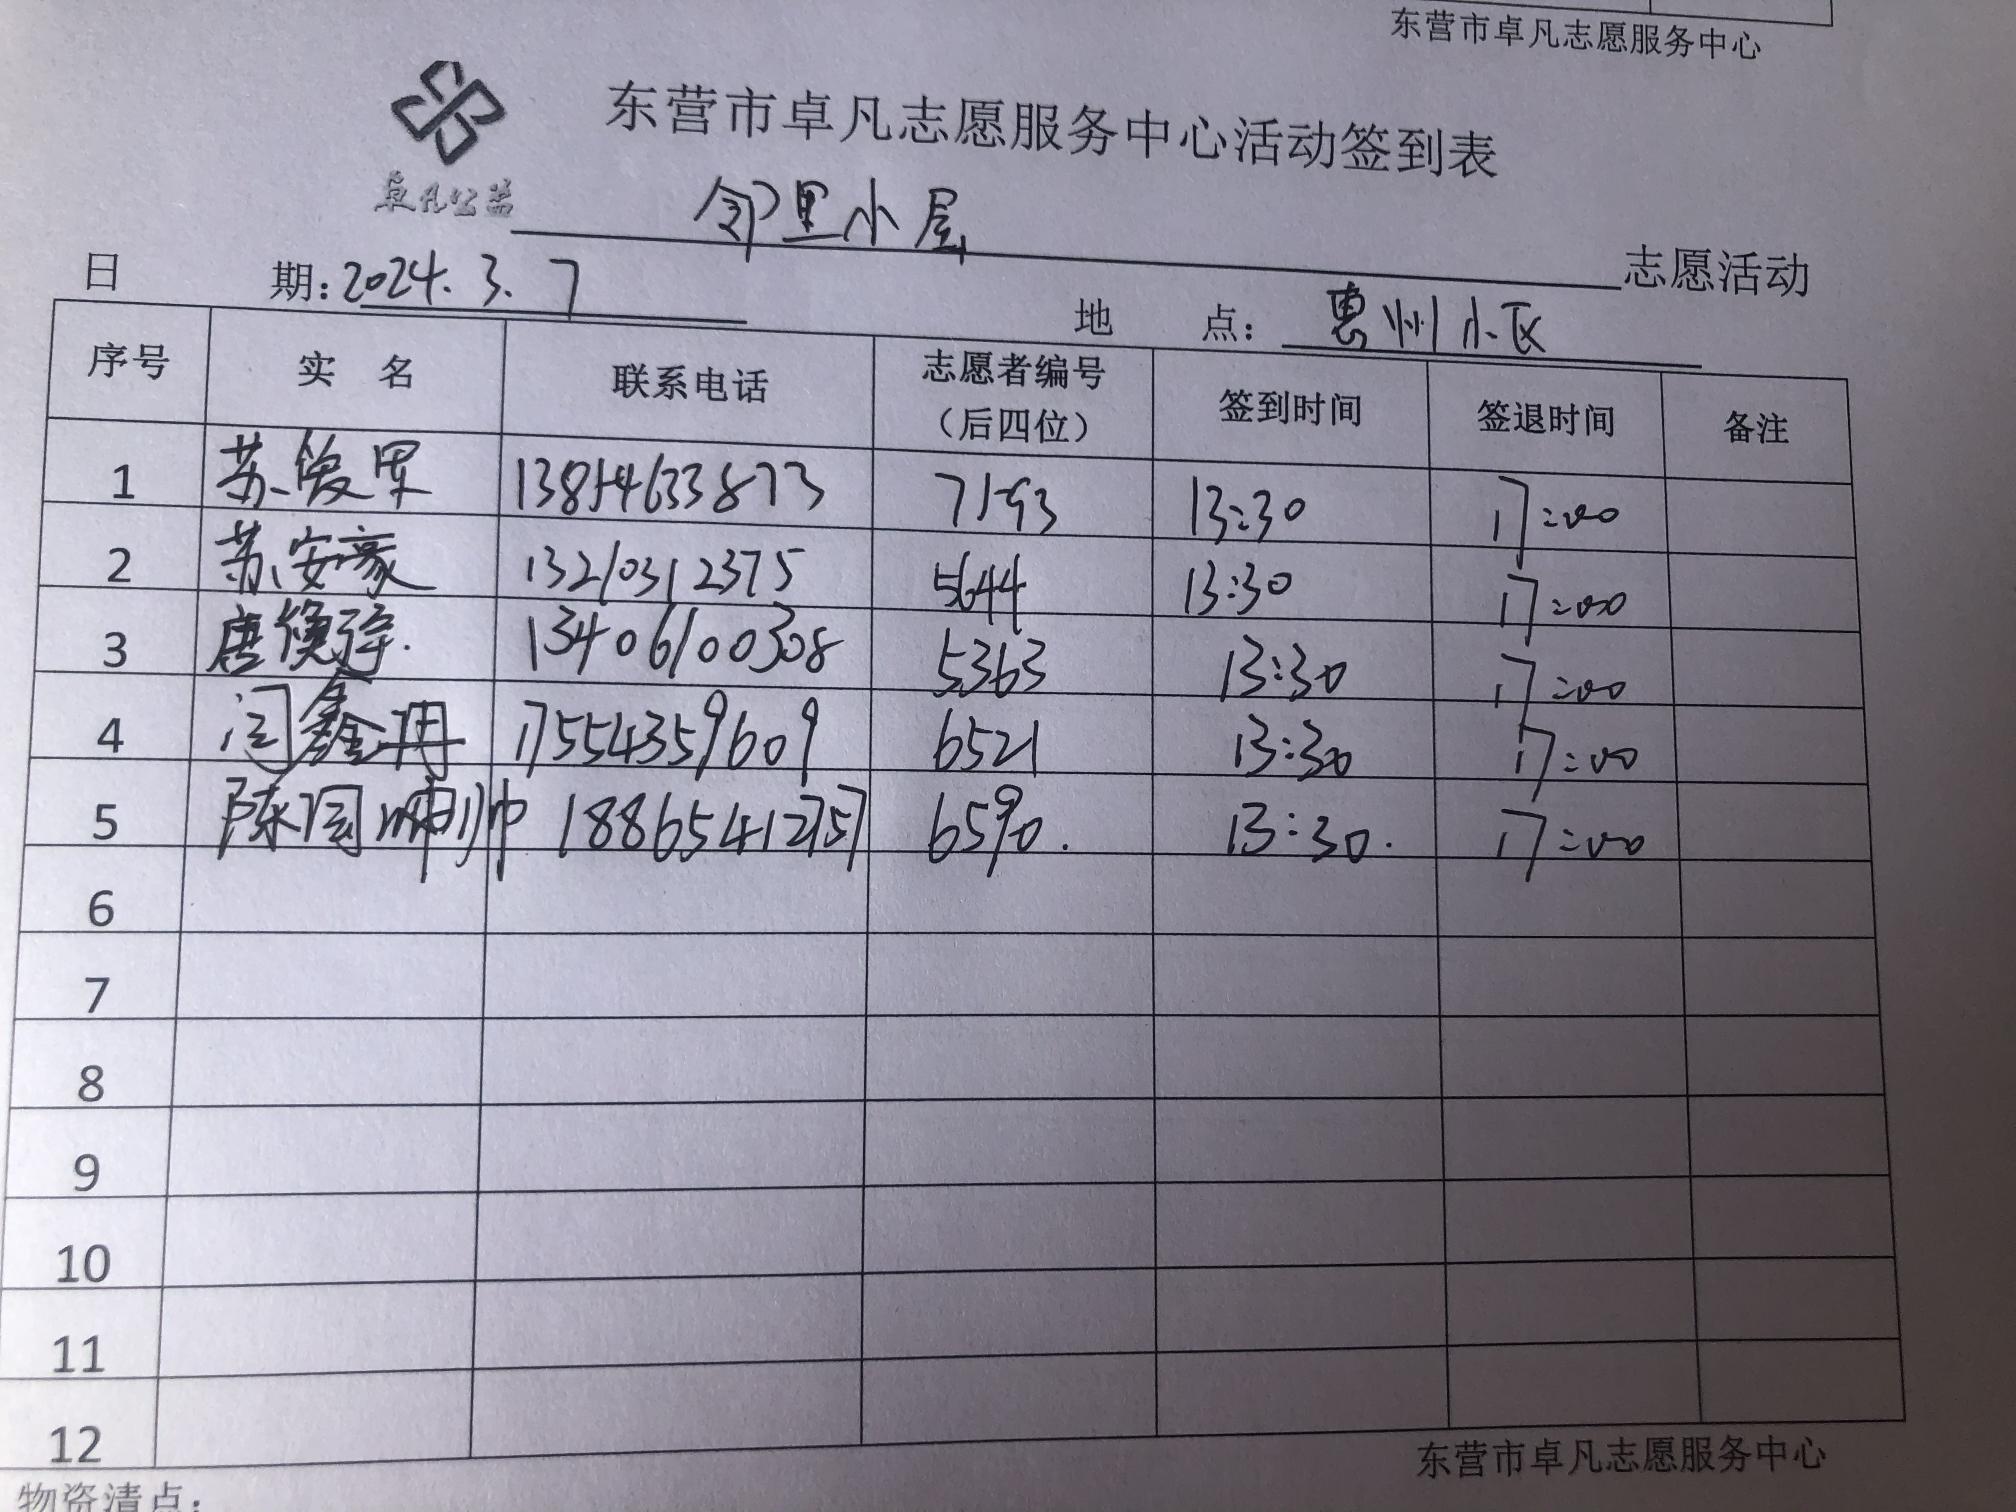 东营市卓凡志愿服务中心
东营市卓凡志愿服务中心活动签到表
卓凡公益
邻里小屋 志愿活动
日 期：2024.3.7 地 点：惠州小区
序号 实 名 联系电话 志愿者编号（后四位） 签到时间 签退时间 备注
1 苏俊 13854633873 7193 13:30 17:00
2 苏安豪 13210312375 5644 13:30 17:00
3 唐 13406100308 5363 13:30 17:00
4 闫鑫冉 17554359609 6521 13:30 17:00
5 陈国帅 18865412757 6590. 13:30. 17:00
6
7
8
9
10
11
12
东营市卓凡志愿服务中心
物资清点：